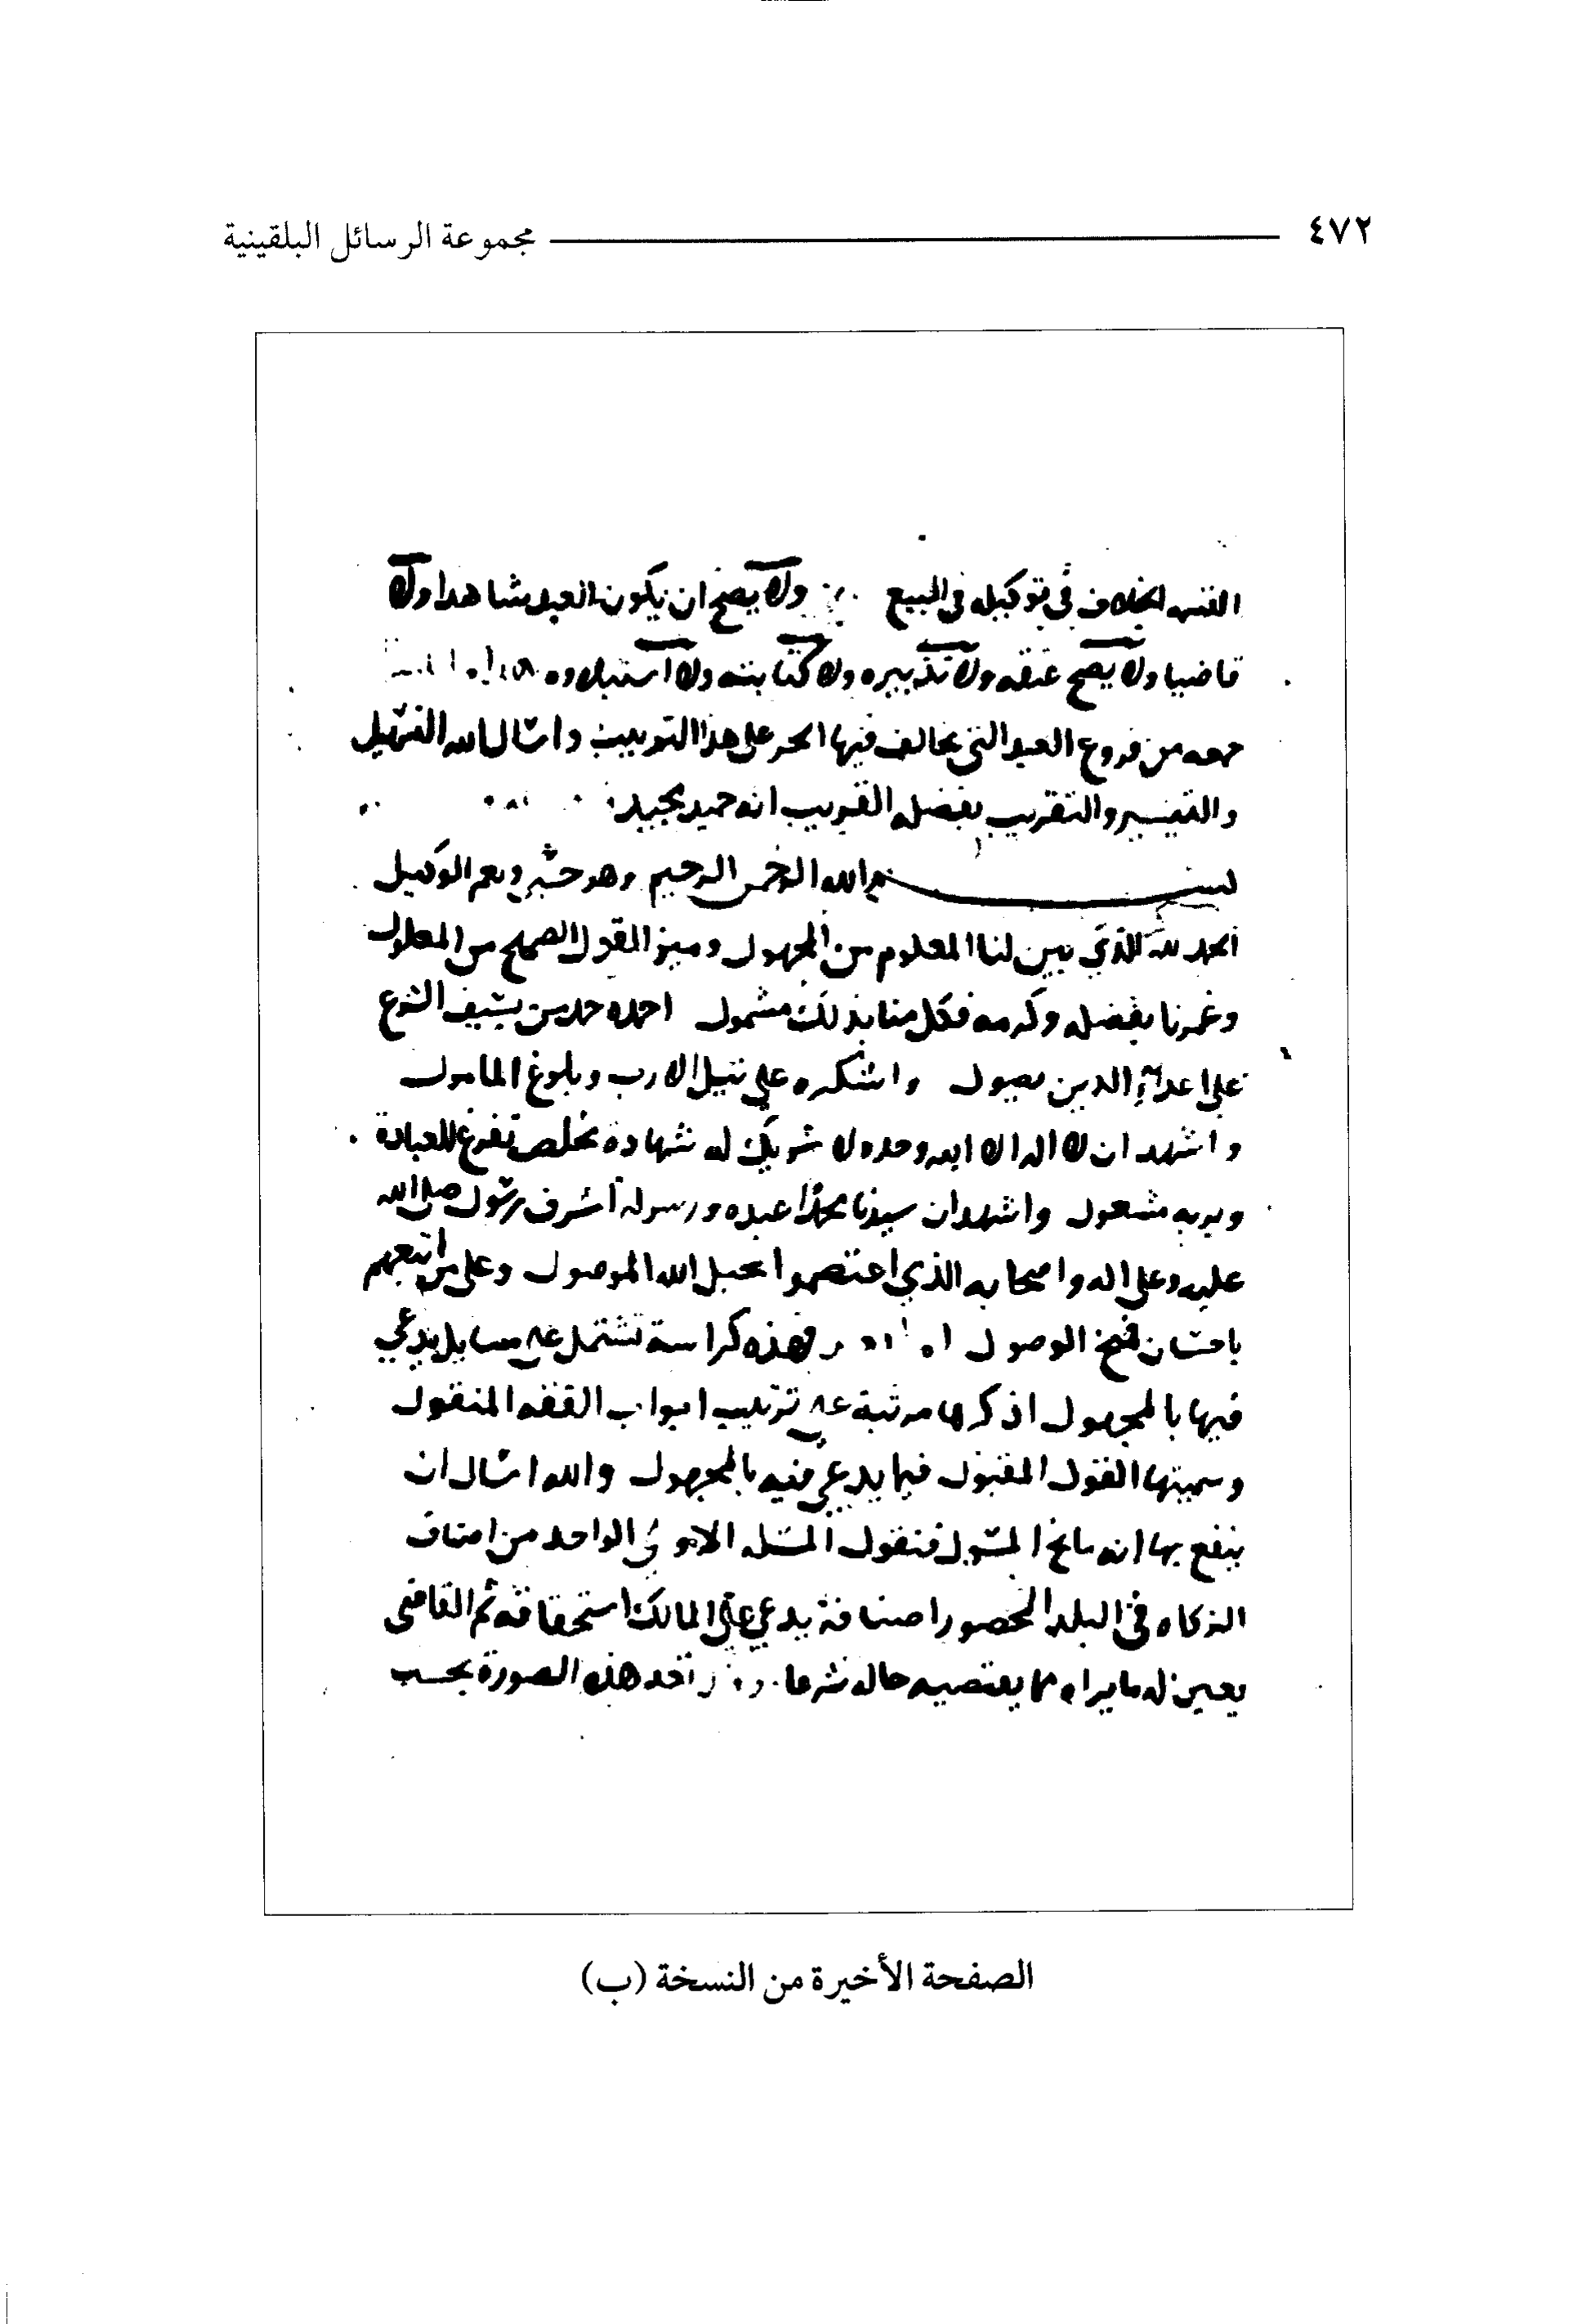 ٤٧٢ مجموعة الرسائل البلقينية
الخلاف في توكيله في البيع ولا يصح ان يكون العبد شاهدا ولا
قاضيا ولا يصح عتقه ولا تدبيره ولا كتابته ولا
جمعه من فروع العبد التي يخالف فيها الحر على هذا التبويب واسال الله التسهيل
والتيسير والتقريب بفضله القريب انه حميد مجيد
بسم الله الرحمن الرحيم وهو حسبي ونعم الوكيل
الحمد لله الذي بين لنا المعلوم من المجهول وميز القول الصحيح من المعلول
وغمرنا بفضله وكرمه فكل منا بذلك مشمول احمده حمد من بسيف الشرع
على اعداء الدين يصول واشكره على نيل الارب وبلوغ المامول
واشهد ان لا اله الا الله وحده لا شريك له شهادة مخلص تفرغ للعبادة
وبربه مشغول واشهد ان سيدنا محمدا عبده ورسوله اشرف رسول صلى الله
عليه وعلى اله واصحابه الذي اعتصموا بحبل الله الموصول وعلى من اتبعهم
باحسان الوصول فهذه كراسة تشتمل على مسايل يدعي
فيها بالمجهول اذكرها مرتبة على ترتيب ابواب الفقه المنقول
وسميتها القول المقبول فيما يدعى فيه بالمجهول والله اسال ان
ينفع بها انه مانح المسول فنقول المسئله الاولى الواحد من اصناف
الزكاه في البلد المحصور اصنافه يدعي على المالك استحقاقه ثم القاضي
يعين له ما يراه مما يقتضيه حاله شرعا هذه الصورة بحسب
الصفحة الأخيرة من النسخة (ب)